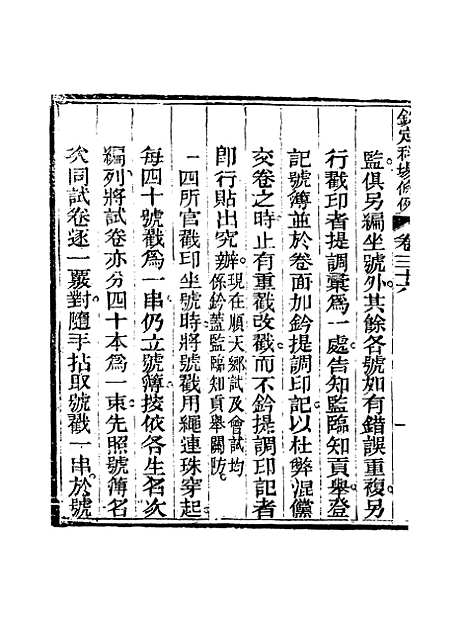 欽定科場條例 卷三十六
監俱另編坐號外其餘各號如有錯誤重複另
行戳印者提調彙爲一處告知監臨知貢舉登
記號簿並於卷面加鈐提調印記以杜弊混儻
交卷之時止有重戳改戳而不鈐提調印記者
卽行貼出究辦現在順天鄉試及會試均
係鈐蓋監臨知貢舉關防
一四所官戳印坐號時將號戳用繩連珠穿起
每四十號戳爲一串仍立號簿按依各生名次
編列將試卷亦分四十本爲一束先照號簿名
次同試卷逐一覈對隨手拈取號戳一串於號